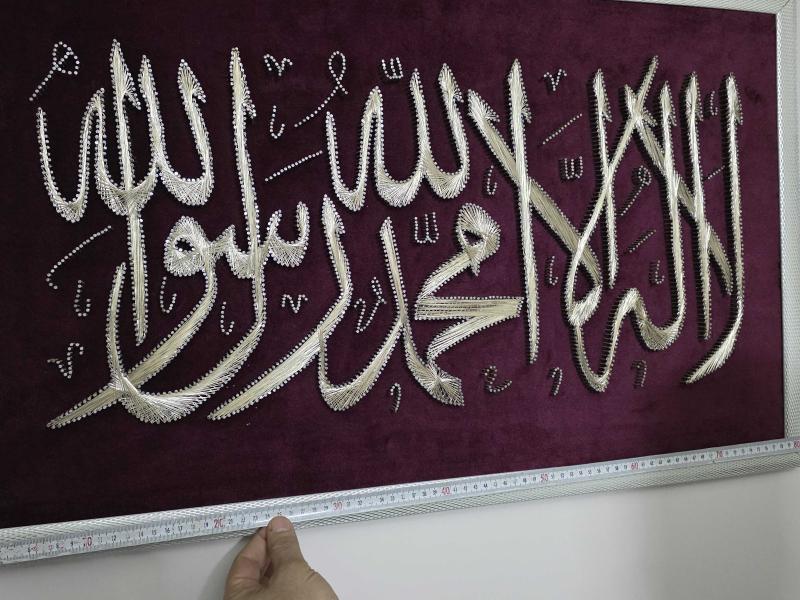 لا إله إلا الله محمد رسول الله
10 20 30 40 50 60 70 80